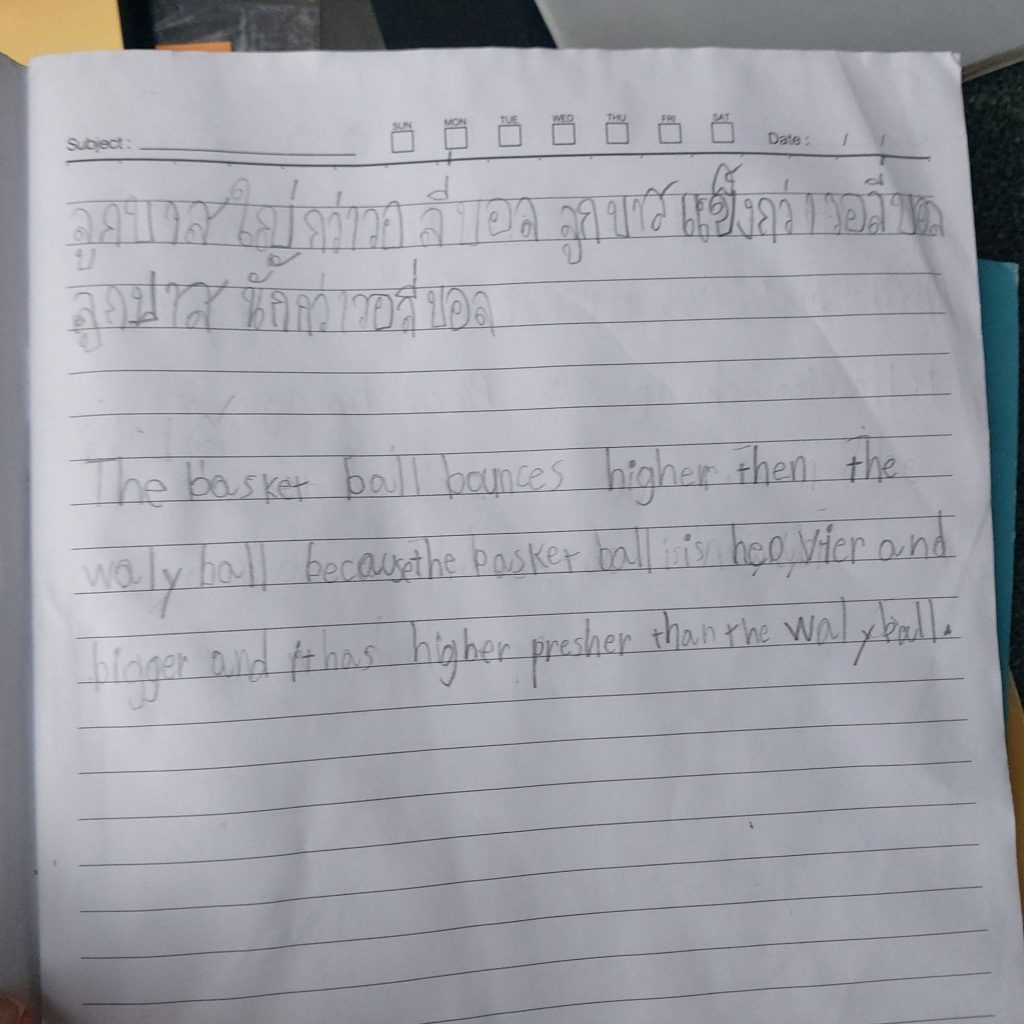 Subject : SUN MON TUE WED THU FRI SAT Date : / /
ลูกบาส ใญ่ กว่าวอ ลี่ บอล ลูก บาส กว่า วอลี่บอล
ลูกบาส นักกว่าวอลี่บอล
The basker ball bounces higher then the
waly ball because the basker ball is is heavier and
bigger and it has higher presher than the waly ball.